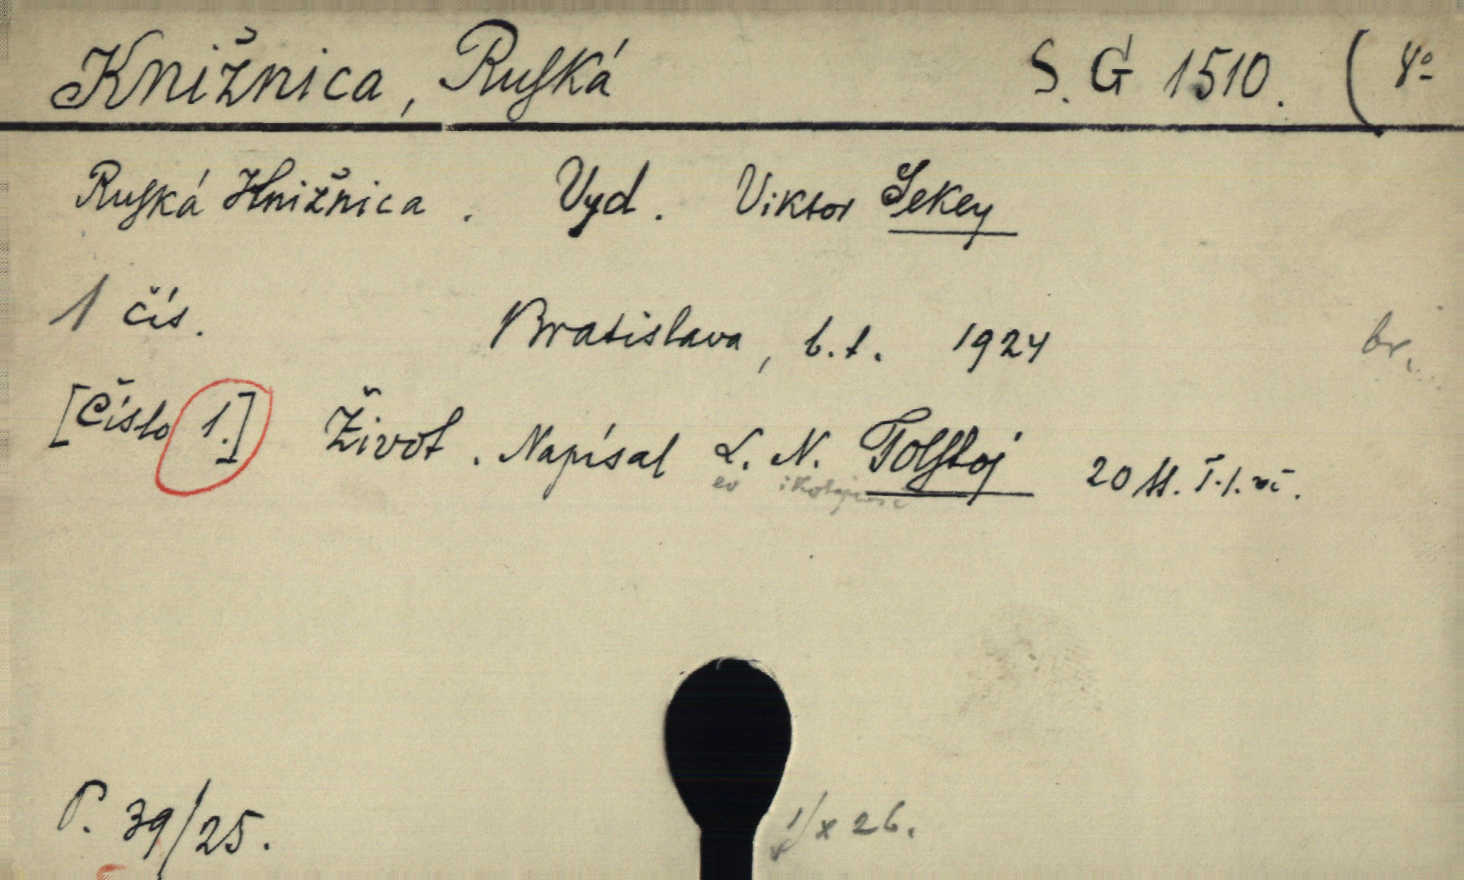 Knižnica, Ruská S. G 1510. ( 8º
Ruská Knižnica. Vyd. Viktor Sekey
1 čís. Bratislava, b.t. 1924 br.
[Číslo 1.] Život. Napísal L. N. Tolstoj 20
ev ikolajevič
P. 39/25.
1/x 26.